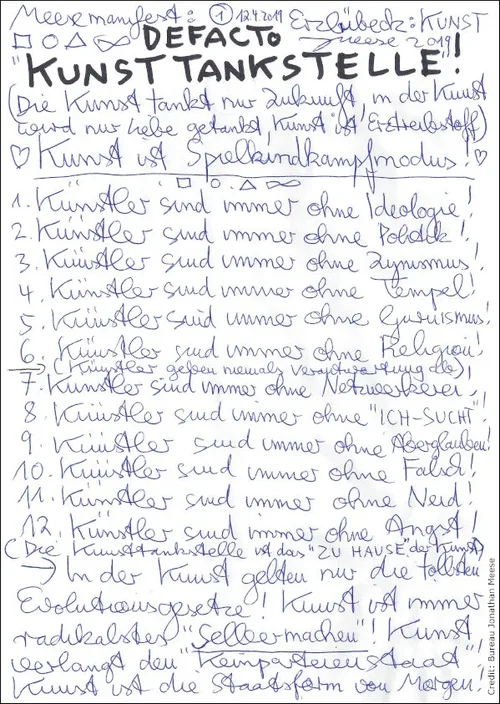 Meesemanifest: ① 12.4.2019 Erzlübeck: KUNST
DEFACTO Meese 2019
"KUNSTTANKSTELLE"!
(Die Kunst tankt nur Zukunft, in der Kunst
wird nur Liebe getankt, Kunst ist Erztreibstoff)
♡ Kunst ist Spielkindkampfmodus! ♡
1. Künstler sind immer ohne Ideologie!
2. Künstler sind immer ohne Politik!
3. Künstler sind immer ohne Zynismus!
4. Künstler sind immer ohne Tempel!
5. Künstler sind immer ohne Guruismus!
6. Künstler sind immer ohne Religion!
→ (Künstler geben niemals Verantwortung ab)
7. Künstler sind immer ohne Netzwerkerei!
8. Künstler sind immer ohne "ICH-SUCHT"!
9. Künstler sind immer ohne Aberglauben!
10. Künstler sind immer ohne Falsch!
11. Künstler sind immer ohne Neid!
12. Künstler sind immer ohne Angst!
(Die Kunsttankstelle ist das "ZU HAUSE" der Kunst)
→ In der Kunst gelten nur die tollsten
Evolutionsgesetze! Kunst ist immer
radikalstes "Selbermachen"! Kunst
verlangt den "Keinparteienstaat"!
Kunst ist die Staatsform von Morgen!
Credit: Bureau Jonathan Meese